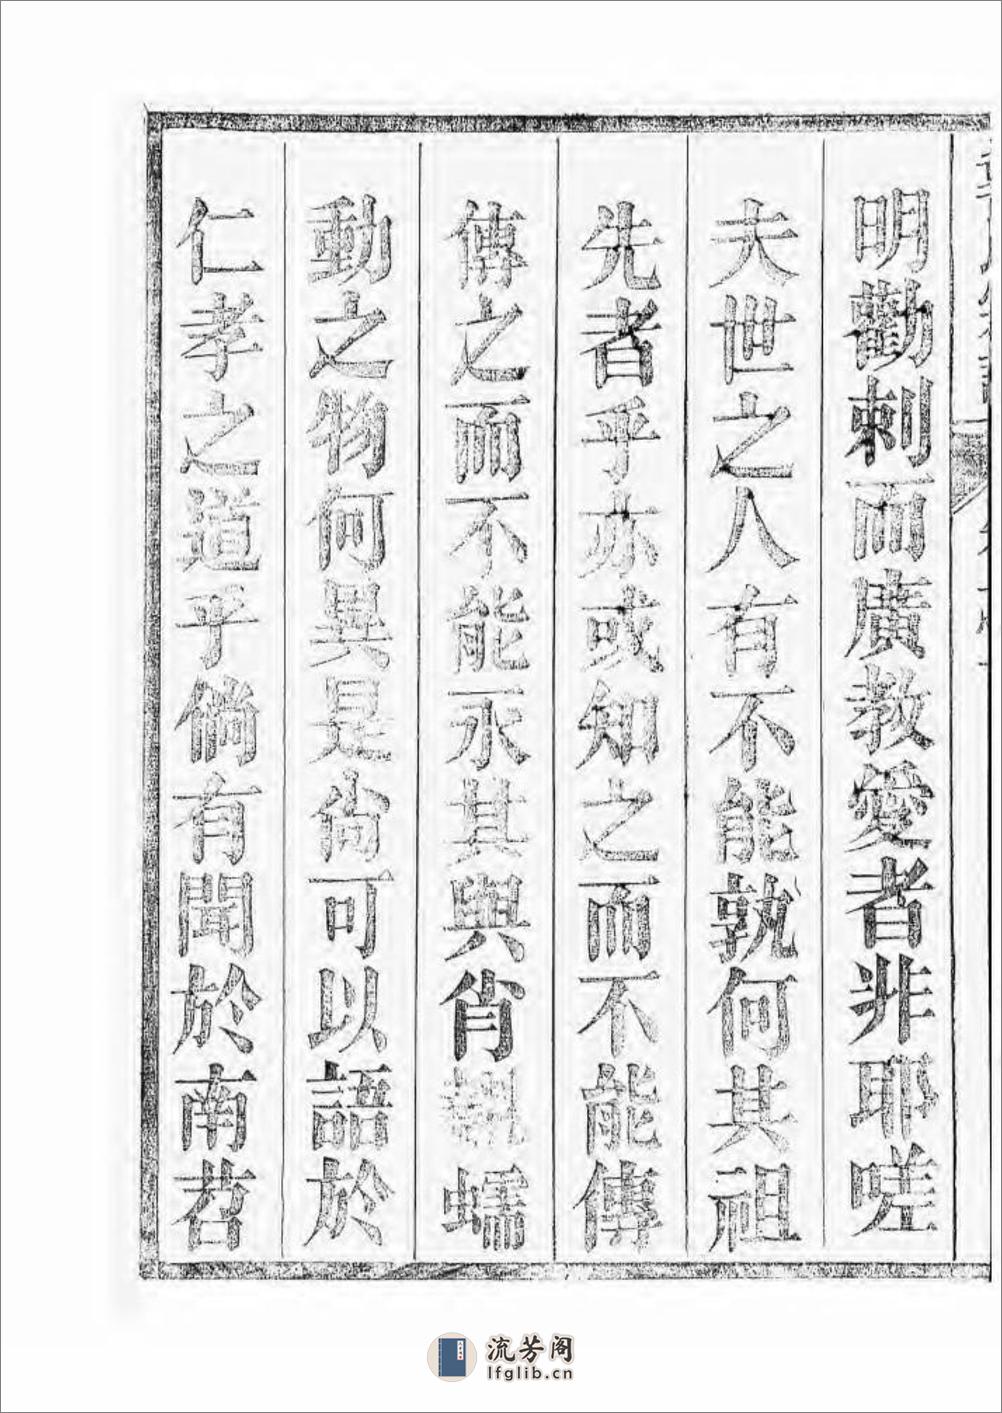 明勸刺而廣教愛者非耶嗟
夫世之人有不能孰何其祖
先者乎亦或知之而不能傳
傳之而不能永其與肖翹蠕
動之物何異是尚可以語於
仁孝之道乎倘有聞於南莙
流芳阁
lfglib.cn